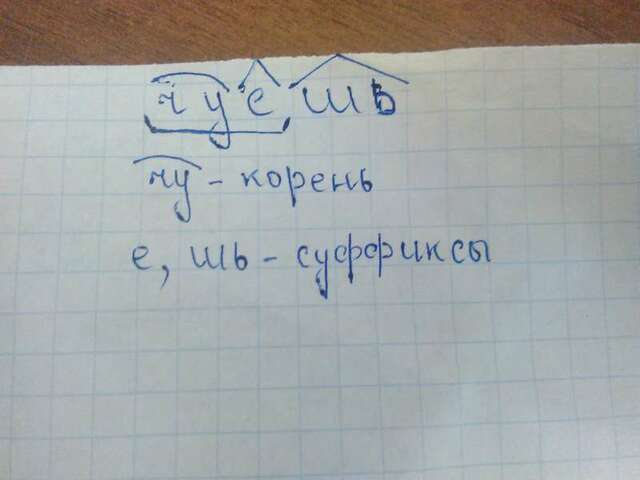 чуешь
чу - корень
е, шь - суффиксы